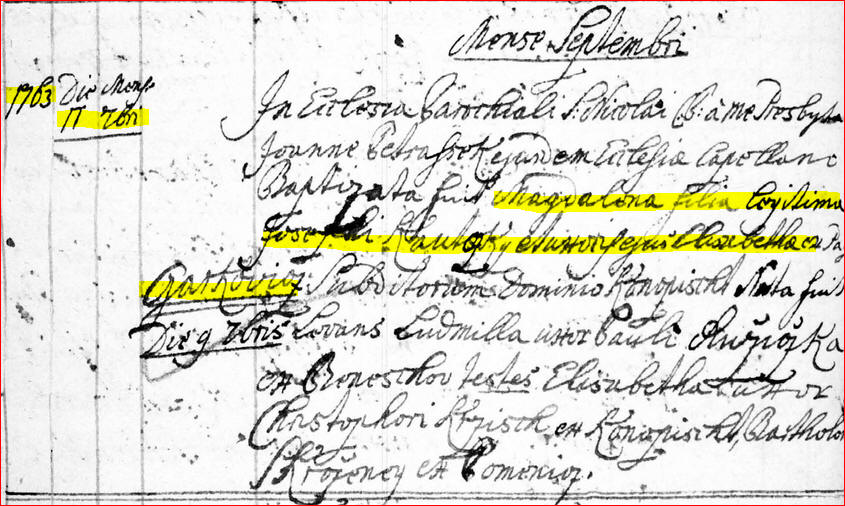 Mense Septembri
1763 Die Mense
17 7bri In Ecclesia Parochiali S: Nicolai E: a me Presbyte
Joanne Petrassek ejusdem Ecclesiæ Capellano
Baptizata fuit Magdalena filia legitima
Josephi et uxoris ejus Elisabethæ ex
Subditorum Dominio Konopischt Nata fuit
Die 9 7bris Levans Ludmilla uxor Pauli Ruziczka
ex Beneschov testes Elisabetha uxor
Christophori ex Konopischt, Bartholo
ex Pomenicz.